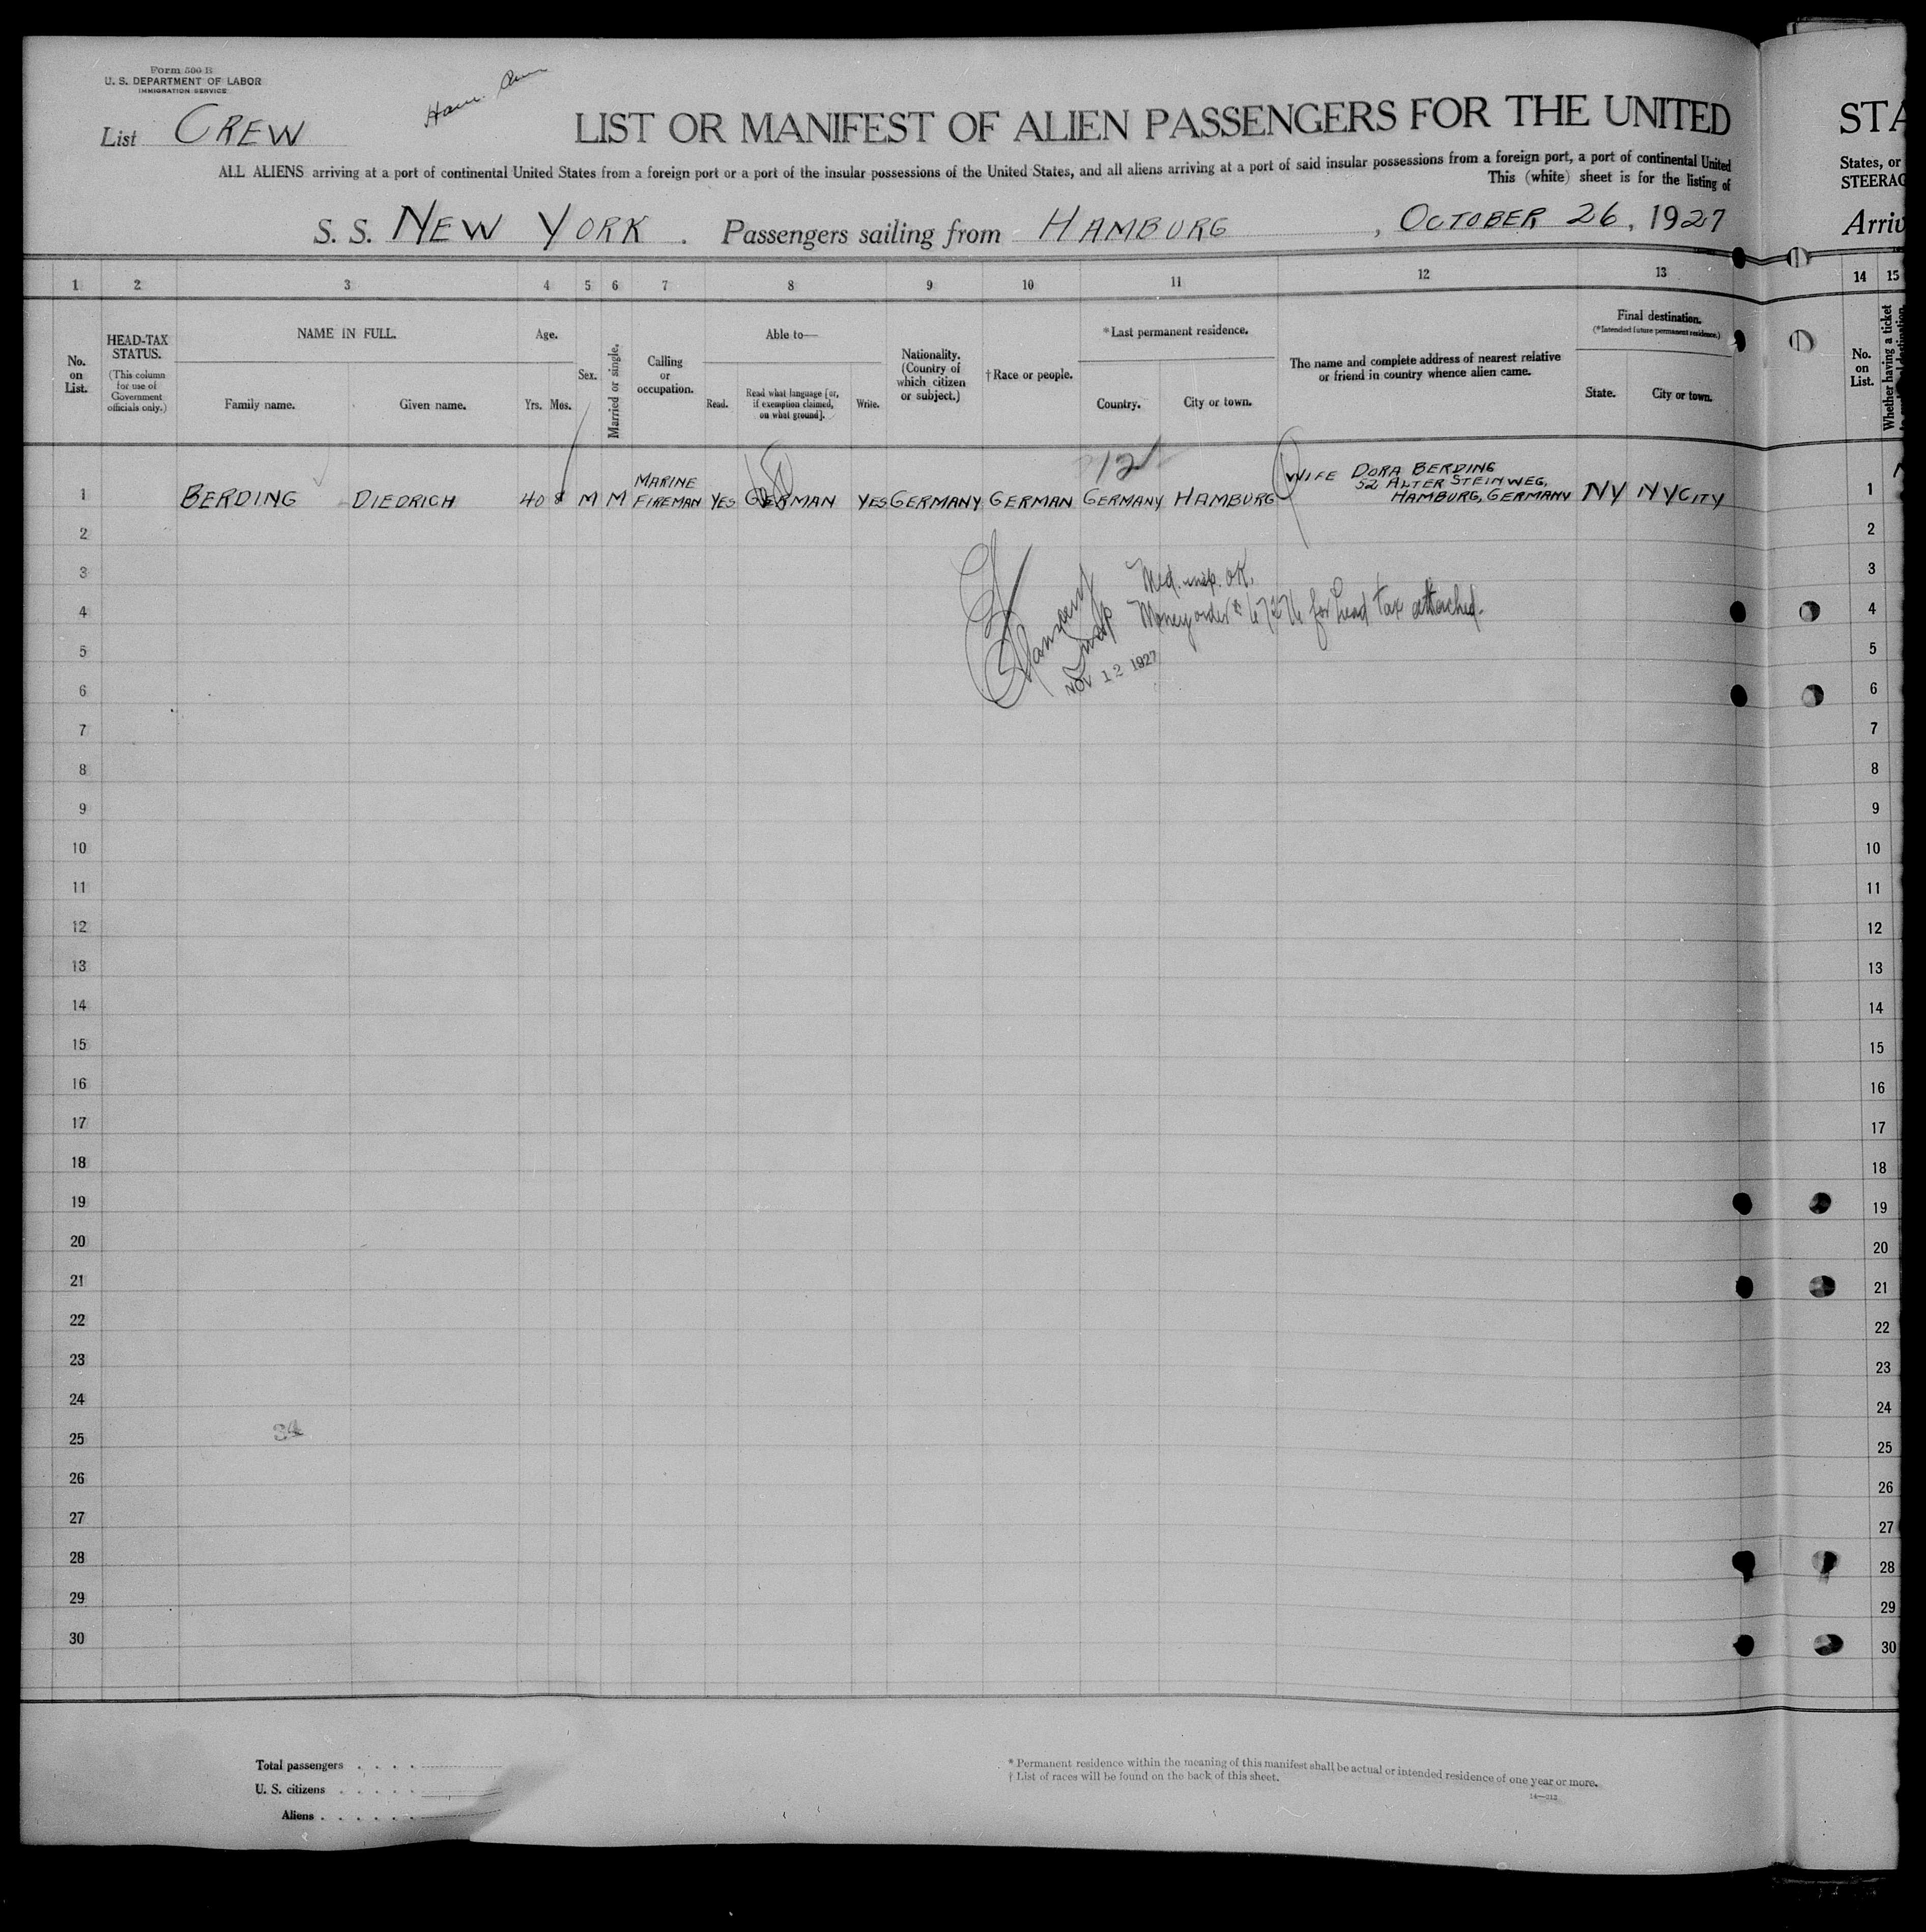 Form 500 B
U. S. DEPARTMENT OF LABOR
IMMIGRATION SERVICE
List CREW
Ham. Am
LIST OR MANIFEST OF ALIEN PASSENGERS FOR THE UNITED
ALL ALIENS arriving at a port of continental United States from a foreign port or a port of the insular possessions of the United States, and all aliens arriving at a port of said insular possessions from a foreign port, a port of continental United
This (white) sheet is for the listing of
S. S. NEW YORK . Passengers sailing from HAMBURG , OCTOBER 26, 1927
1 2 3 4 5 6 7 8 9 10 11 12 13
No. on List.
HEAD-TAX STATUS.
(This column for use of Government officials only.)
NAME IN FULL.
Family name. Given name.
Age.
Yrs. Mos.
Sex.
Married or single.
Calling or occupation.
Able to—
Read.
Read what language [or, if exemption claimed, on what ground].
Write.
Nationality. (Country of which citizen or subject.)
†Race or people.
*Last permanent residence.
Country. City or town.
The name and complete address of nearest relative or friend in country whence alien came.
Final destination.
(*Intended future permanent residence.)
State. City or town.
12
1 BERDING DIEDRICH 40 8 M M MARINE FIREMAN YES GERMAN YES GERMANY GERMAN GERMANY HAMBURG WIFE DORA BERDING 52 ALTER STEINWEG, HAMBURG, GERMANY NY NYCITY
2
3
4
5
6
7
8
9
10
11
12
13
14
15
16
17
18
19
20
21
22
23
24
25
26
27
28
29
30
Med. insp. OK.
Money order for head tax attached.
Insp
NOV 12 1927
Total passengers . . . .
U. S. citizens . . . . .
Aliens . . . . . .
* Permanent residence within the meaning of this manifest shall be actual or intended residence of one year or more.
† List of races will be found on the back of this sheet.
14—212
STA
States, or
STEERAG
Arriv
14 15
No. on List.
Whether having a ticket
1
2
3
4
5
6
7
8
9
10
11
12
13
14
15
16
17
18
19
20
21
22
23
24
25
26
27
28
29
30